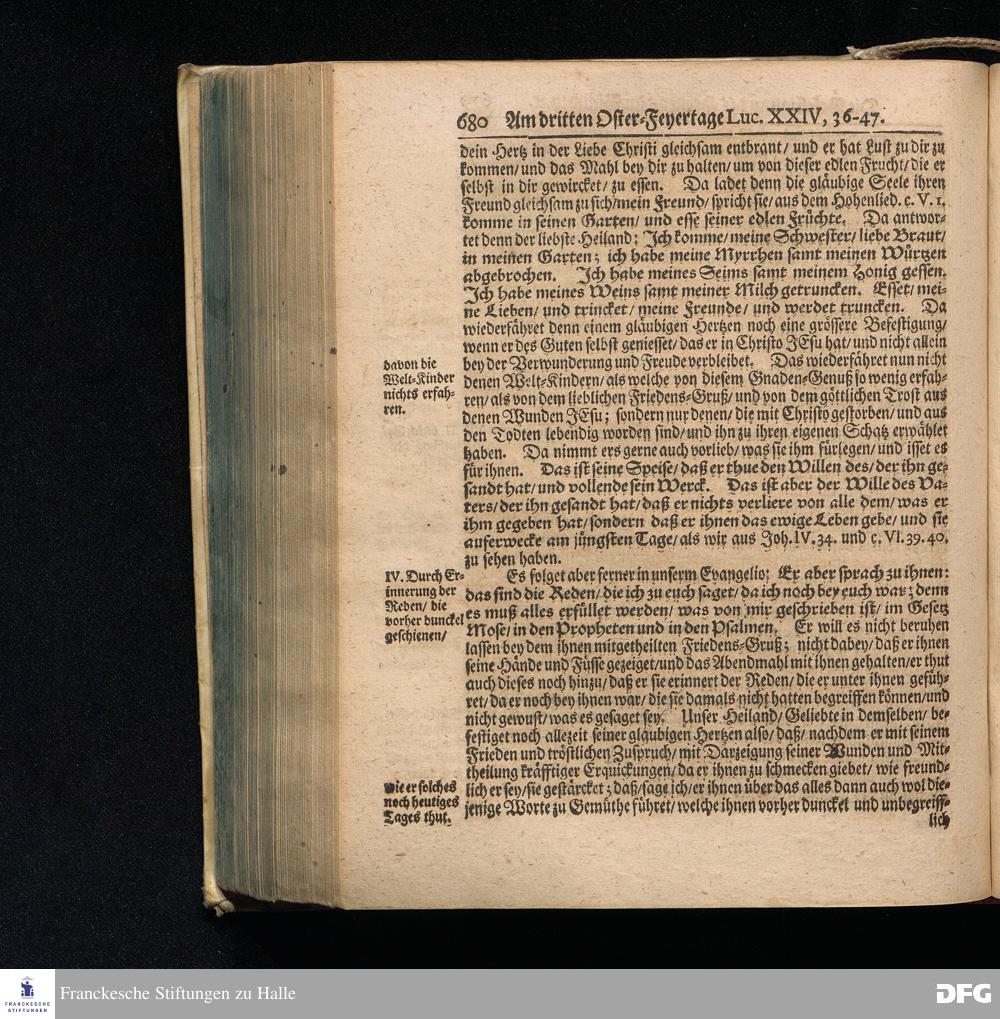 680 Am dritten Oster-Feyertage Luc. XXIV, 36-47.
dein Hertz in der Liebe Christi gleichsam entbrant/ und er hat Lust zu dir zu
kommen/ und das Mahl bey dir zu halten/ um von dieser edlen Frucht/ die er
selbst in dir gewircket/ zu essen. Da ladet denn die gläubige Seele ihren
Freund gleichsam zu sich/ mein Freund/ spricht sie/ aus dem Hohenlied. c. V. 1.
komme in seinen Garten/ und esse seiner edlen Früchte. Da antwor-
tet denn der liebste Heiland: Ich komme/ meine Schwester/ liebe Braut/
in meinen Garten; ich habe meine Myrrhen samt meinen Würtzen
abgebrochen. Ich habe meines Seims samt meinem Honig gessen.
Ich habe meines Weins samt meiner Milch getruncken. Esset/ mei-
ne Lieben/ und trincket/ meine Freunde/ und werdet truncken. Da
wiederfähret denn einem gläubigen Hertzen noch eine grössere Befestigung/
wenn er des Guten selbst geniesset/ das er in Christo JEsu hat/ und nicht allein
bey der Verwunderung und Freude verbleibet. Das wiederfähret nun nicht
denen Welt-Kindern/ als welche von diesem Gnaden-Genuß so wenig erfah-
ren/ als von dem lieblichen Friedens-Gruß/ und von dem göttlichen Trost aus
denen Wunden JEsu; sondern nur denen/ die mit Christo gestorben/ und aus
den Todten lebendig worden sind/ und ihn zu ihren eigenen Schatz erwählet
haben. Da nimmt ers gerne auch vorlieb/ was sie ihm fürlegen/ und isset es
für ihnen. Das ist seine Speise/ daß er thue den Willen des/ der ihn ge-
sandt hat/ und vollende sein Werck. Das ist aber der Wille des Va-
ters/ der ihn gesandt hat/ daß er nichts verliere von alle dem/ was er
ihm gegeben hat/ sondern daß er ihnen das ewige Leben gebe/ und sie
auferwecke am jüngsten Tage/ als wir aus Joh. IV. 34. und c. VI. 39. 40.
zu sehen haben.
davon die
Welt-Kinder
nichts erfah-
ren.
Es folget aber ferner in unserm Evangelio: Er aber sprach zu ihnen:
das sind die Reden/ die ich zu euch saget/ da ich noch bey euch war; denn
es muß alles erfüllet werden/ was von mir geschrieben ist/ im Gesetz
Mose/ in den Propheten und in den Psalmen. Er will es nicht beruhen
lassen bey dem ihnen mitgetheilten Friedens-Gruß; nicht dabey/ daß er ihnen
seine Hände und Füsse gezeiget/ und das Abendmahl mit ihnen gehalten/ er thut
auch dieses noch hinzu/ daß er sie erinnert der Reden/ die er unter ihnen gefüh-
ret/ da er noch bey ihnen war/ die sie damals nicht hatten begreiffen können/ und
nicht gewust/ was es gesaget sey. Unser Heiland/ Geliebte in demselben/ be-
festiget noch allezeit seiner gläubigen Hertzen also/ daß/ nachdem er mit seinem
Frieden und tröstlichen Zuspruch/ mit Darzeigung seiner Wunden und Mit-
theilung kräfftiger Erquickungen/ da er ihnen zu schmecken giebet/ wie freund-
lich er sey/ sie gestärcket; daß/ sage ich/ er ihnen über das alles dann auch wol die-
jenige Worte zu Gemüthe führet/ welche ihnen vorher dunckel und unbegreiff-
lich
IV. Durch Er-
innerung der
Reden/ die
vorher dunckel
geschienen/
wie er solches
noch heutiges
Tages thut.
FRANCKESCHE
STIFTUNGEN
Franckesche Stiftungen zu Halle
DFG